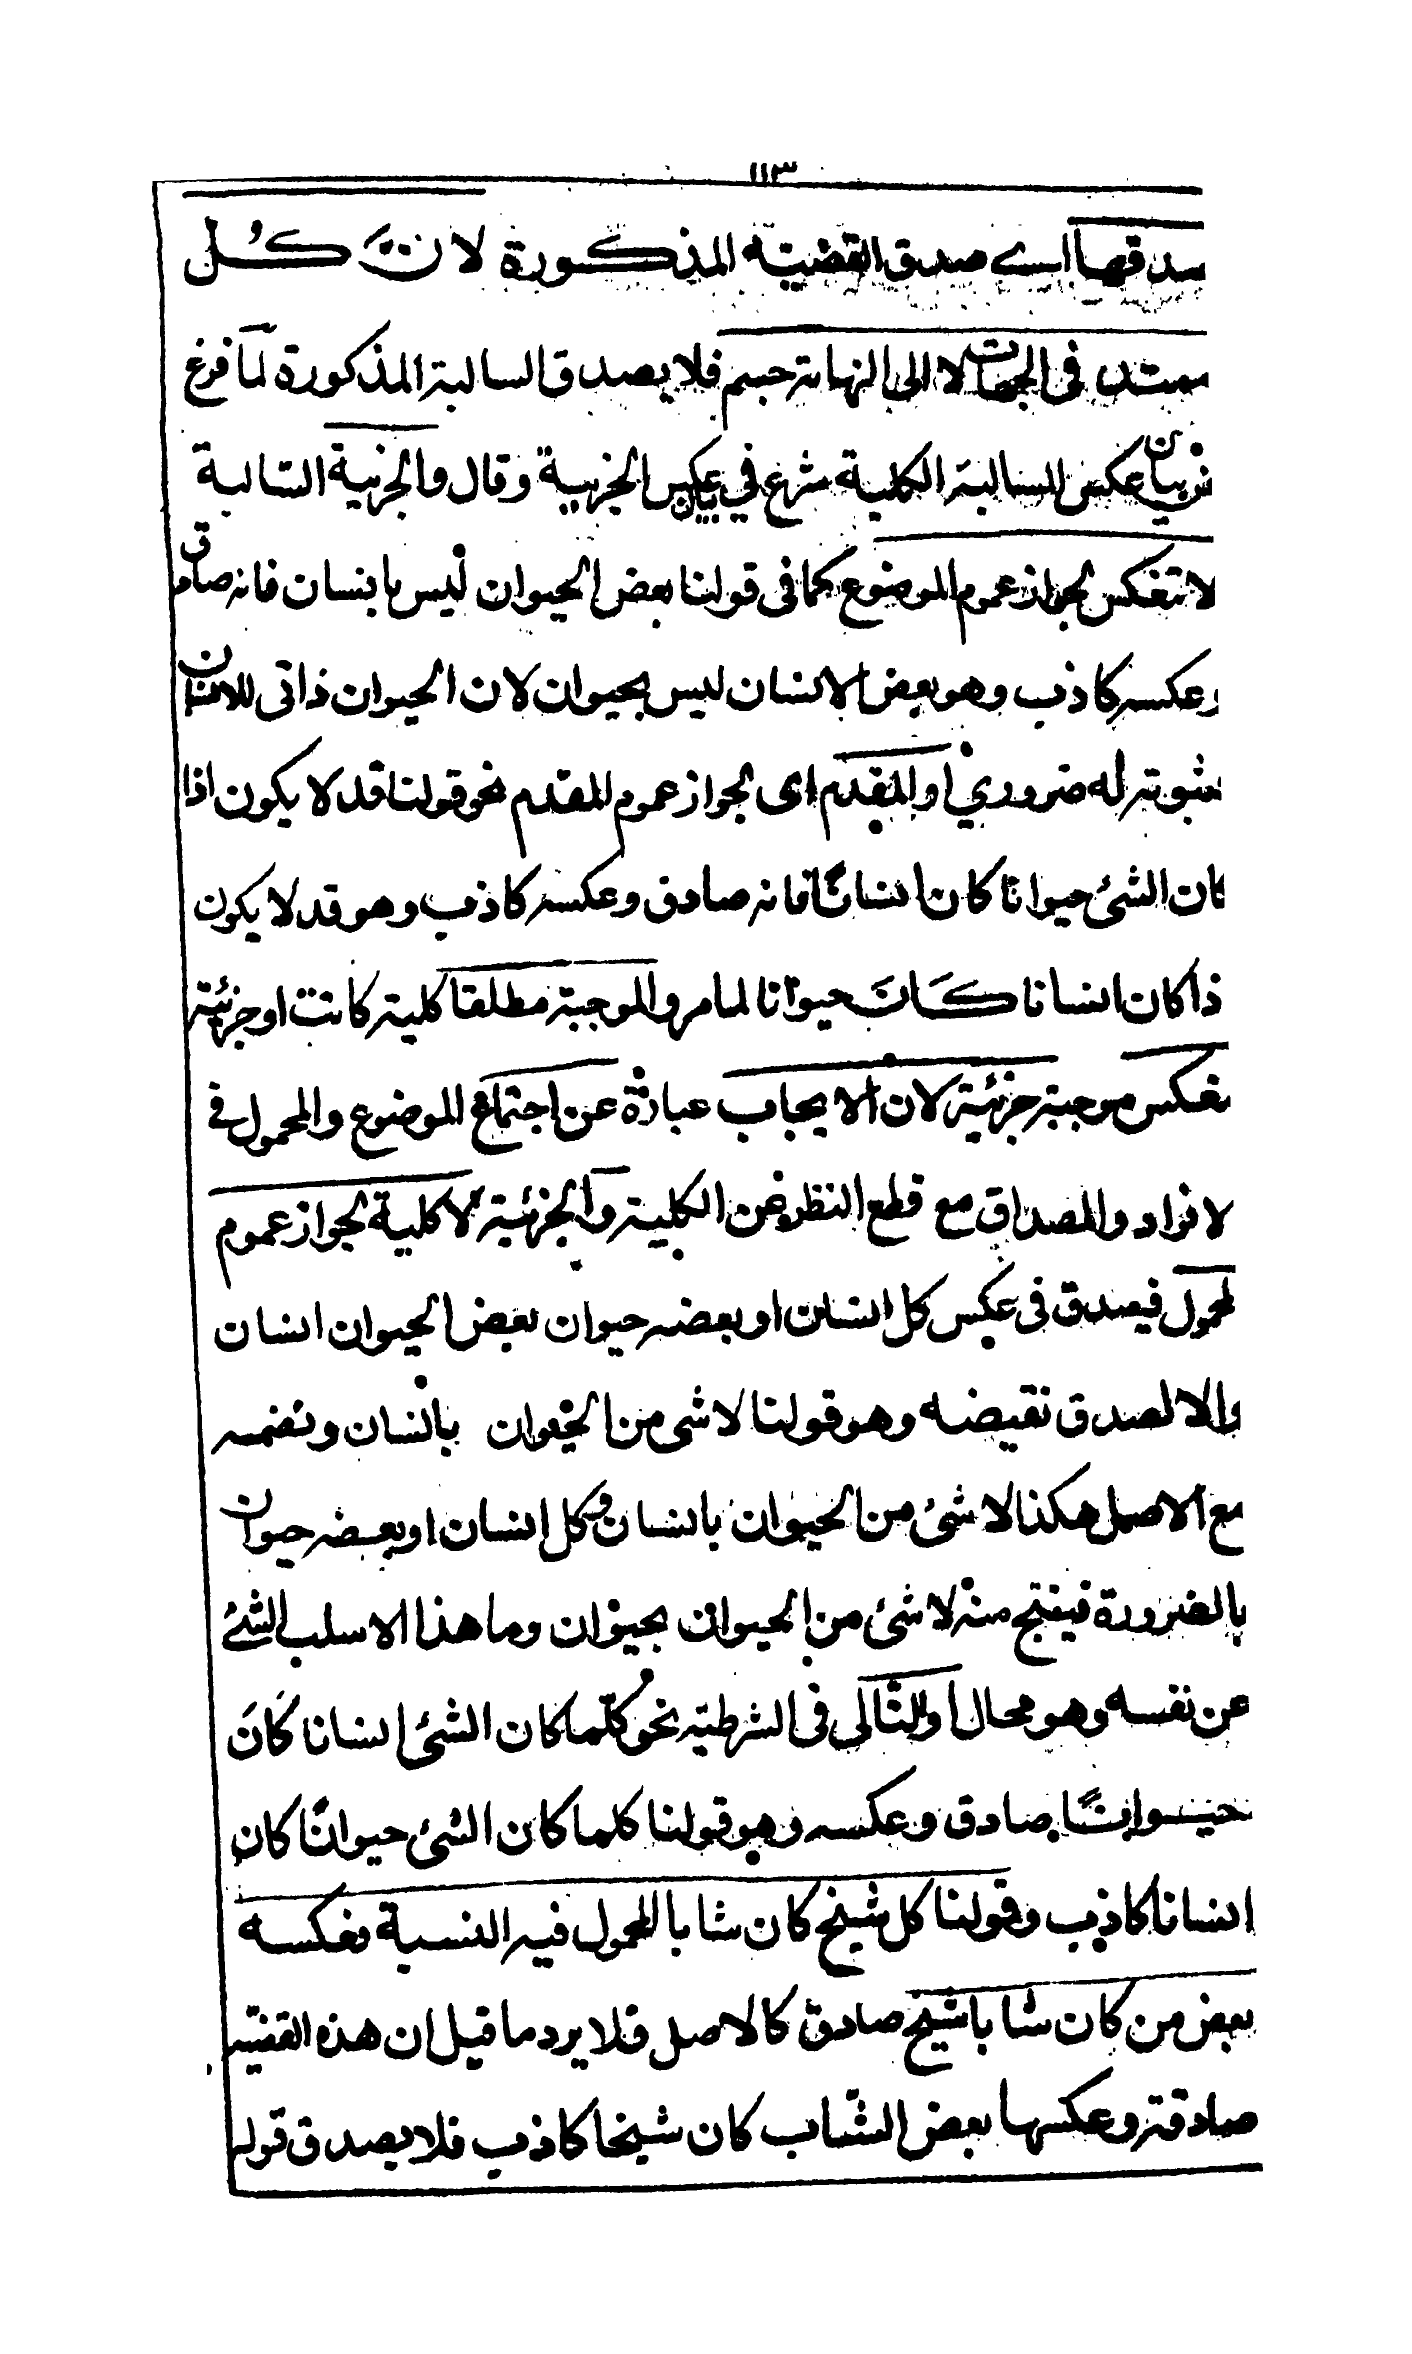 ١١٣
صدقها اے صدق القضية المذكورة لانَّ كُل
ممتد فى الجهات لا الى النهاية جسم فلا يصدق السالبة المذكورة لما فرغ
من بيان عكس السالبة الكلية شرع في بيان عكس الجزئية وقال والجزئية السالبة
لا تنعكس لجواز عموم الموضوع كما فى قولنا بعض الحيوان ليس بانسان فانه صادق
وعكسه كاذب وهو بعض الانسان ليس بحيوان لان الحيوان ذاتى للانسان
فثبوته له ضروري او المقدم اى لجواز عموم المقدم نحو قولنا قد لا يكون اذا
كان الشئ حيوانا كان انسانًا فانه صادق وعكسه كاذب وهو قد لا يكون
اذا كان انسانا كَانَ حيوانا لما مر والموجبة مطلقا كلية كانت او جزئية
تنعكس موجبة جزئية لان الايجاب عبارة عن اجتماع الموضوع والمحمول في
الافراد والمصداق مع قطع النظر عن الكلية والجزئية لا كلية لجواز عموم
المحمول فيصدق فى عكس كل انسان او بعضه حيوان بعض الحيوان انسان
والا لصدق نقيضه وهو قولنا لا شى من الحيوان بانسان ونضمه
مع الاصل هكذا لا شئ من الحيوان بانسان وكل انسان او بعضه حيوان
بالضرورة فينتج منه لا شئ من الحيوان بحيوان وما هذا الا سلب الشئ
عن نفسه وهو محال او التالى فى الشرطية نحو كلّما كان الشئ انسانا كَانَ
حيوانًا صادق وعكسه وهو قولنا كلما كان الشئ حيوانًا كان
انسانا كاذب وقولنا كل شيخ كان شابا المحمول فيه النسبة فعكسه
بعض من كان شابا شيخ صادق كالاصل فلا يرد ما قيل ان هذه القضية
صادقة وعكسها بعض الشاب كان شيخا كاذب فلا يصدق قوله